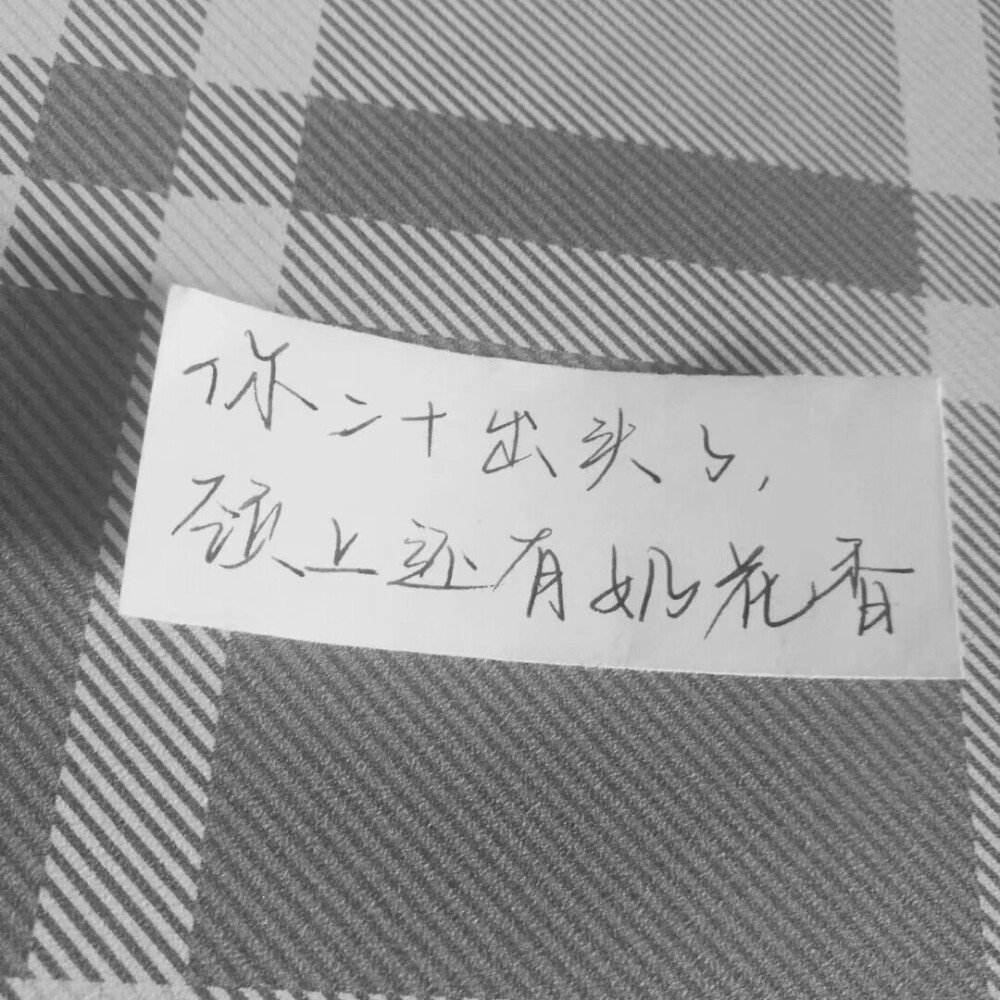 你二十出头了,
颈上还有奶花香